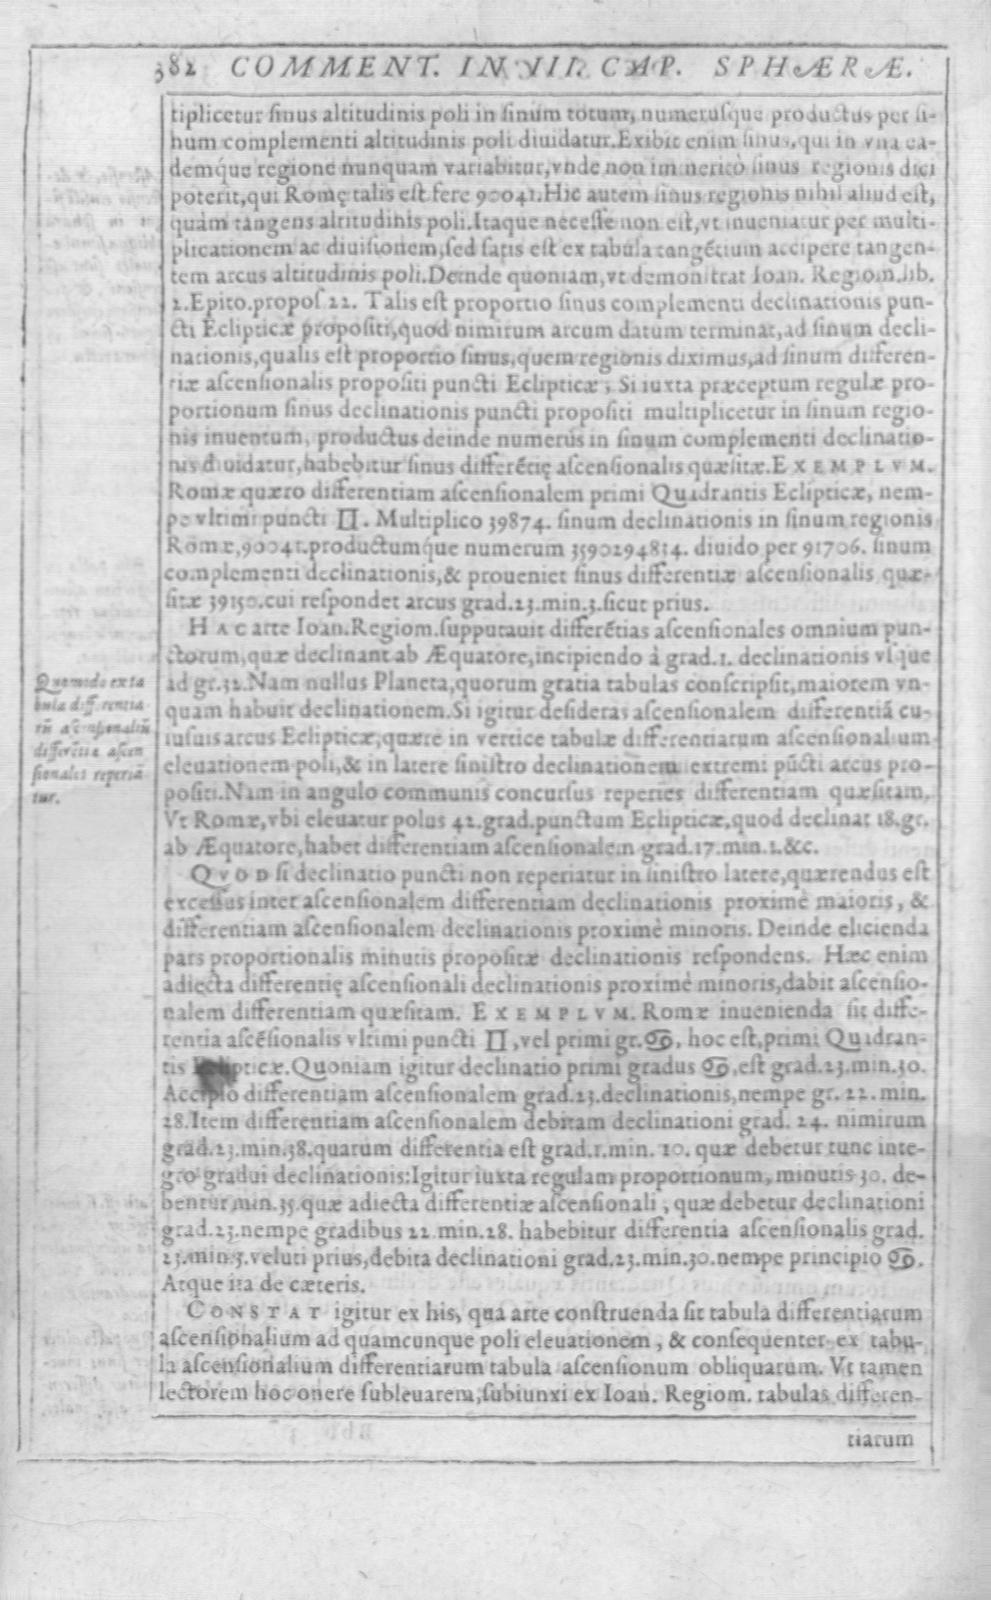 382 COMMENT. IN III. CAP. SPHÆRÆ.
tiplicetur sinus altitudinis poli in sinum totum, numerusque productus per si-
num complementi altitudinis poli diuidatur. Exibit enim sinus, qui in vna ea-
demq́ue regione nunquam variabitur, vnde non immeritò sinus regionis dici
poterit, qui Romę talis est fere 90041. Hic autem sinus regionis nihil aliud est,
quàm tangens altitudinis poli. Itaque necesse non est, vt inueniatur per multi-
plicationem ac diuisionem, sed satis est ex tabula tangẽtium accipere tangen-
tem arcus altitudinis poli. Deinde quoniam, vt demonstrat Ioan. Regiom. lib.
2. Epito. propos. 22. Talis est proportio sinus complementi declinationis pun-
cti Eclipticæ propositi, quod nimirum arcum datum terminat, ad sinum decli-
nationis, qualis est proportio sinus, quem regionis diximus, ad sinum differen-
tiæ ascensionalis propositi puncti Eclipticæ; Si iuxta præceptum regulæ pro-
portionum sinus declinationis puncti propositi multiplicetur in sinum regio-
nis inuentum, productus deinde numerus in sinum complementi declinatio-
nis diuidatur, habebitur sinus differẽtię ascensionalis quæsitæ. EXEMPLVM.
Romæ quæro differentiam ascensionalem primi Quadrantis Eclipticæ, nem-
pe vltimi puncti ♊. Multiplico 39874. sinum declinationis in sinum regionis
Romæ, 90041. productumq́ue numerum 3590294834. diuido per 91706. sinum
complementi declinationis, & proueniet sinus differentiæ ascensionalis quæ-
sitæ 39150. cui respondet arcus grad. 23. min. 3. sicut prius.
HAC arte Ioan. Regiom. supputauit differẽtias ascensionales omnium pun-
ctorum, quæ declinant ab Æquatore, incipiendo à grad. 1. declinationis vsque
ad gr. 32. Nam nullus Planeta, quorum gratia tabulas conscripsit, maiorem vn-
quam habuit declinationem. Si igitur desideras ascensionalem differentiã cu-
iusuis arcus Eclipticæ, quære in vertice tabulæ differentiarum ascensionalium
eleuationem poli, & in latere sinistro declinationem extremi pũcti arcus pro-
positi. Nam in angulo communis concursus reperies differentiam quæsitam.
Vt Romæ, vbi eleuatur polus 42. grad. punctum Eclipticæ, quod declinat 18. gr.
ab Æquatore, habet differentiam ascensionalem grad. 17. min. 1. &c.
Quomodo ex ta
bula differentia
rũ ascensionaliũ
differẽtia ascen
sionalis reperiã
tur.
QVOD si declinatio puncti non reperiatur in sinistro latere, quærendus est
excessus inter ascensionalem differentiam declinationis proximè maioris, &
differentiam ascensionalem declinationis proximè minoris. Deinde elicienda
pars proportionalis minutis propositæ declinationis respondens. Hæc enim
adiecta differentię ascensionali declinationis proximè minoris, dabit ascensio-
nalem differentiam quæsitam. EXEMPLVM. Romæ inuenienda sit diffe-
rentia ascẽsionalis vltimi puncti ♊, vel primi gr. ♋, hoc est, primi Quadran-
tis Eclipticæ. Quoniam igitur declinatio primi gradus ♋, est grad. 23. min. 30.
Accipio differentiam ascensionalem grad. 23. declinationis, nempe gr. 22. min.
28. Item differentiam ascensionalem debitam declinationi grad. 24. nimirum
grad. 23. min. 38. quarum differentia est grad. 1. min. 10. quæ debetur tunc inte-
gro gradui declinationis: Igitur iuxta regulam proportionum, minutis 30. de-
bentur min. 35. quæ adiecta differentiæ ascensionali, quæ debetur declinationi
grad. 23. nempe gradibus 22. min. 28. habebitur differentia ascensionalis grad.
23. min. 3. veluti prius, debita declinationi grad. 23. min. 30. nempe principio ♋.
Atque ita de cæteris.
CONSTAT igitur ex his, qua arte construenda sit tabula differentiarum
ascensionalium ad quamcunque poli eleuationem, & consequenter ex tabu-
la ascensionalium differentiarum tabula ascensionum obliquarum. Vt tamen
lectorem hoc onere subleuarem, subiunxi ex Ioan. Regiom. tabulas differen-
tiarum